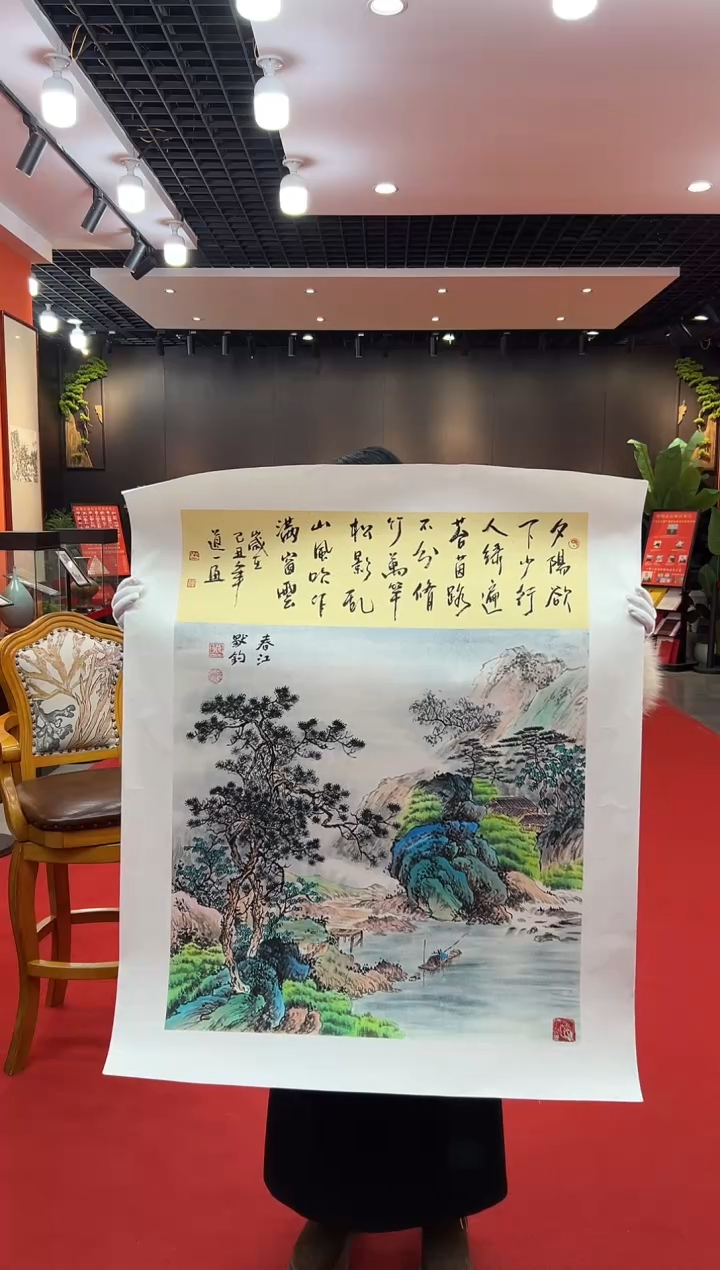 夕陽欲
下少行
人綠遍
苔茵路
不分脩
竹萬竿
松影乱
山風吹作
滿窗雲
歲在
己丑年
道一
春江
默钧